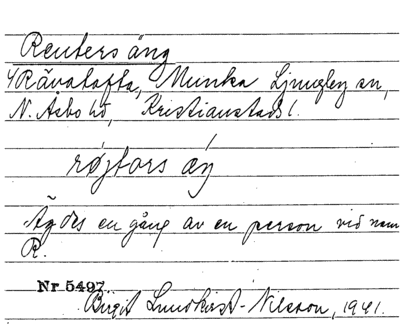 Reuters äng
Rävatofta, Munka Ljungby sn,
N. Åsbo hd, Kristianstads l.
røjtərs æŋ
Ägdes en gång av en person vid namn
R.
Nr 5497
Birgit Lundkvist-Nilsson, 1941.